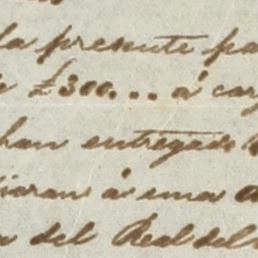 la presente pa
£300... á car
han entregado
icaran á una
del Real del